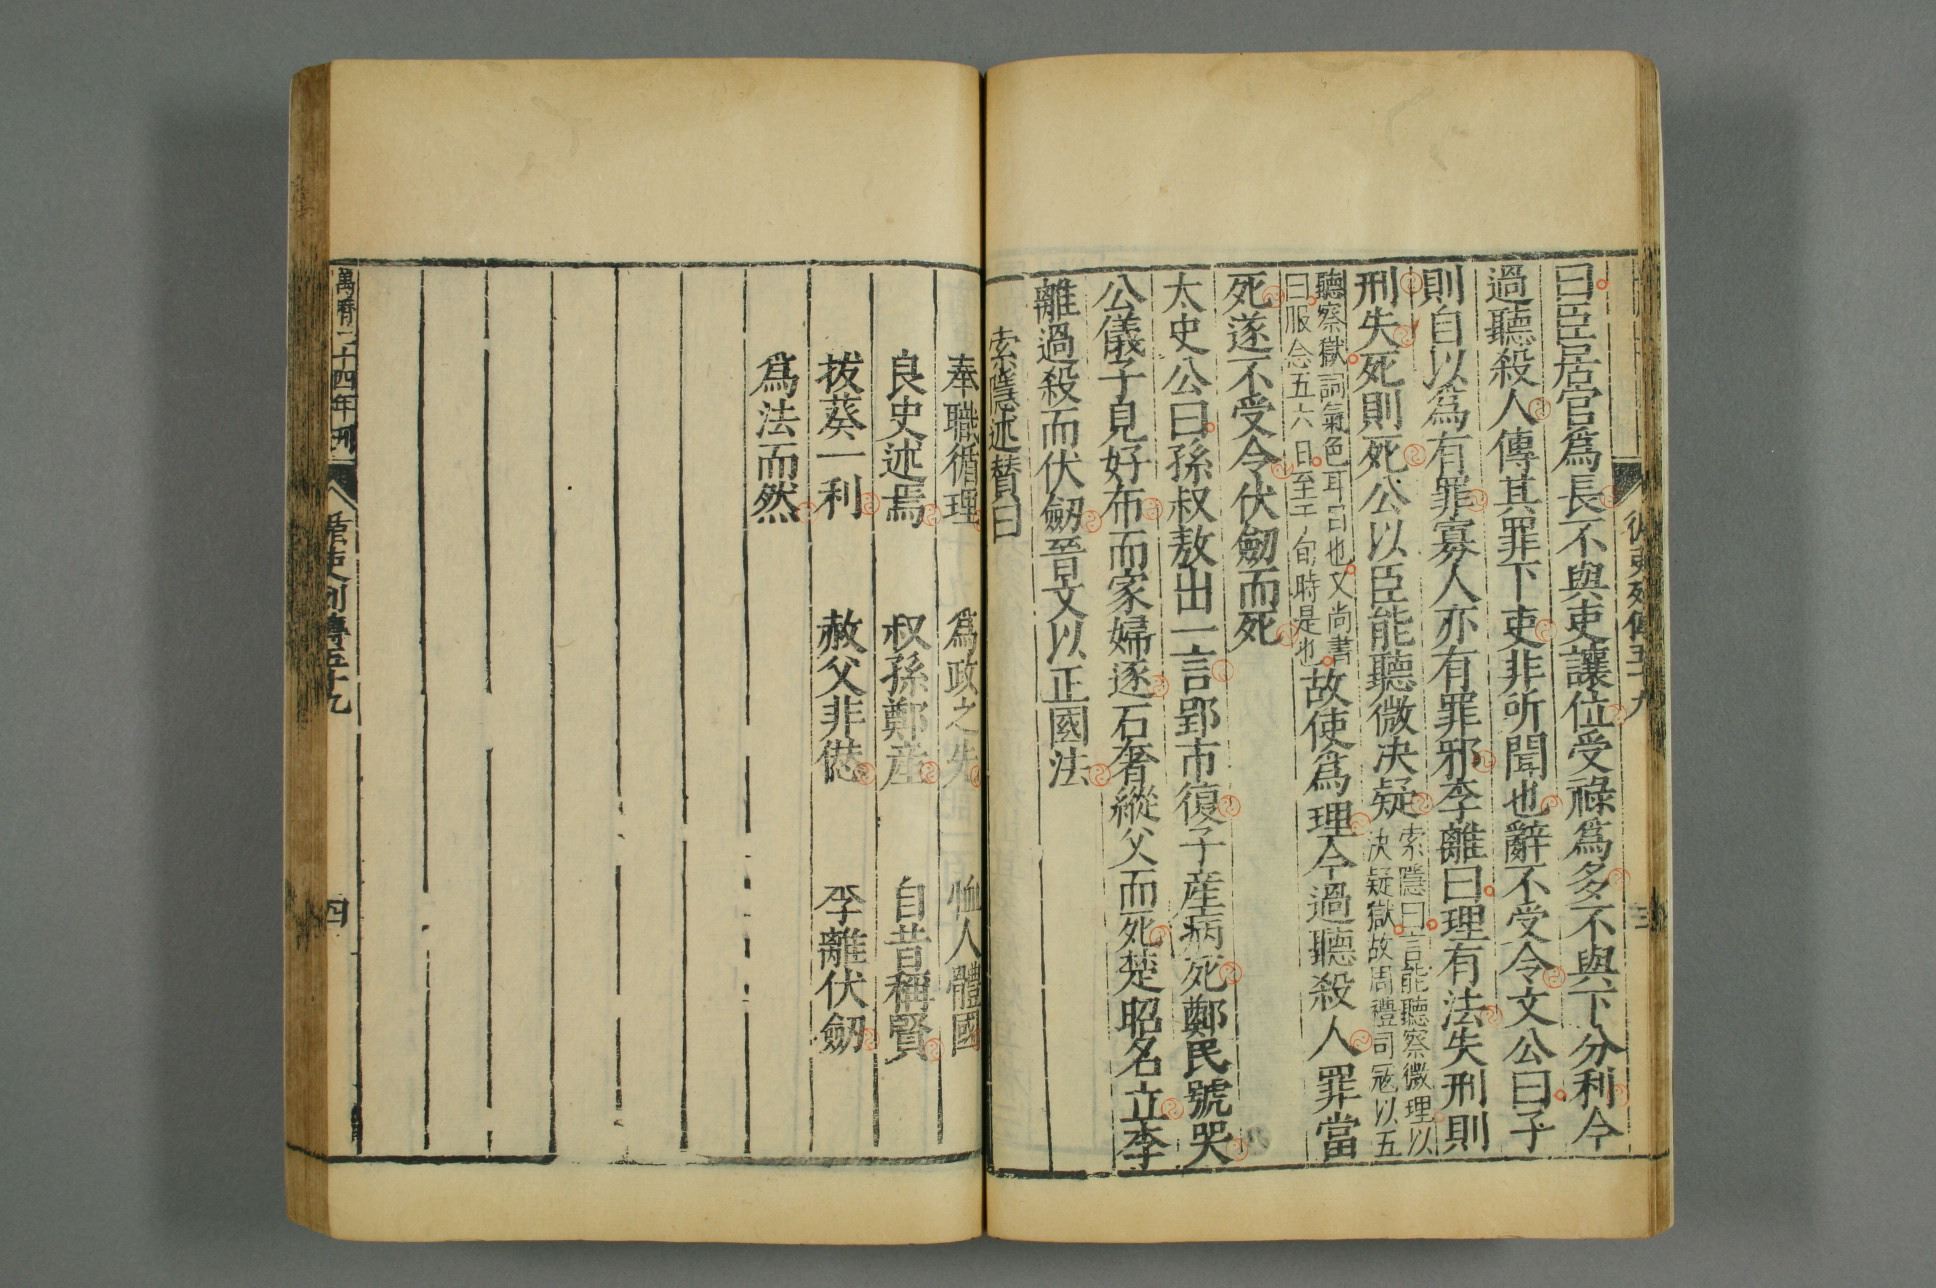 循吏列傳五十九
三
曰臣居官爲長不與吏讓位受祿爲多不與下分利今
過聽殺人傳其罪下吏非所聞也辭不受令文公曰子
則自以爲有罪寡人亦有罪邪李離曰理有法失刑則
刑失死則死公以臣能聽微决疑
索隱曰言能聽察微理以
决疑獄故周禮司寇以五
聽察獄詞氣色耳目也又尚書
曰服念五六日至于旬時是也
故使爲理今過聽殺人罪當
死遂不受令伏劒而死
太史公曰孫叔敖出一言郢市復子產病死鄭民號哭
公儀子見好布而家婦逐石奢縱父而死楚昭名立李
離過殺而伏劒晉文以正國法
索隱述賛曰
奉職循理 爲政之先 恤人體國
良史述焉 叔孫鄭産 自昔稱賢
拔葵一利 赦父非愆 李離伏劒
爲法而然
萬曆二十四年刊
循吏列傳五十九
四